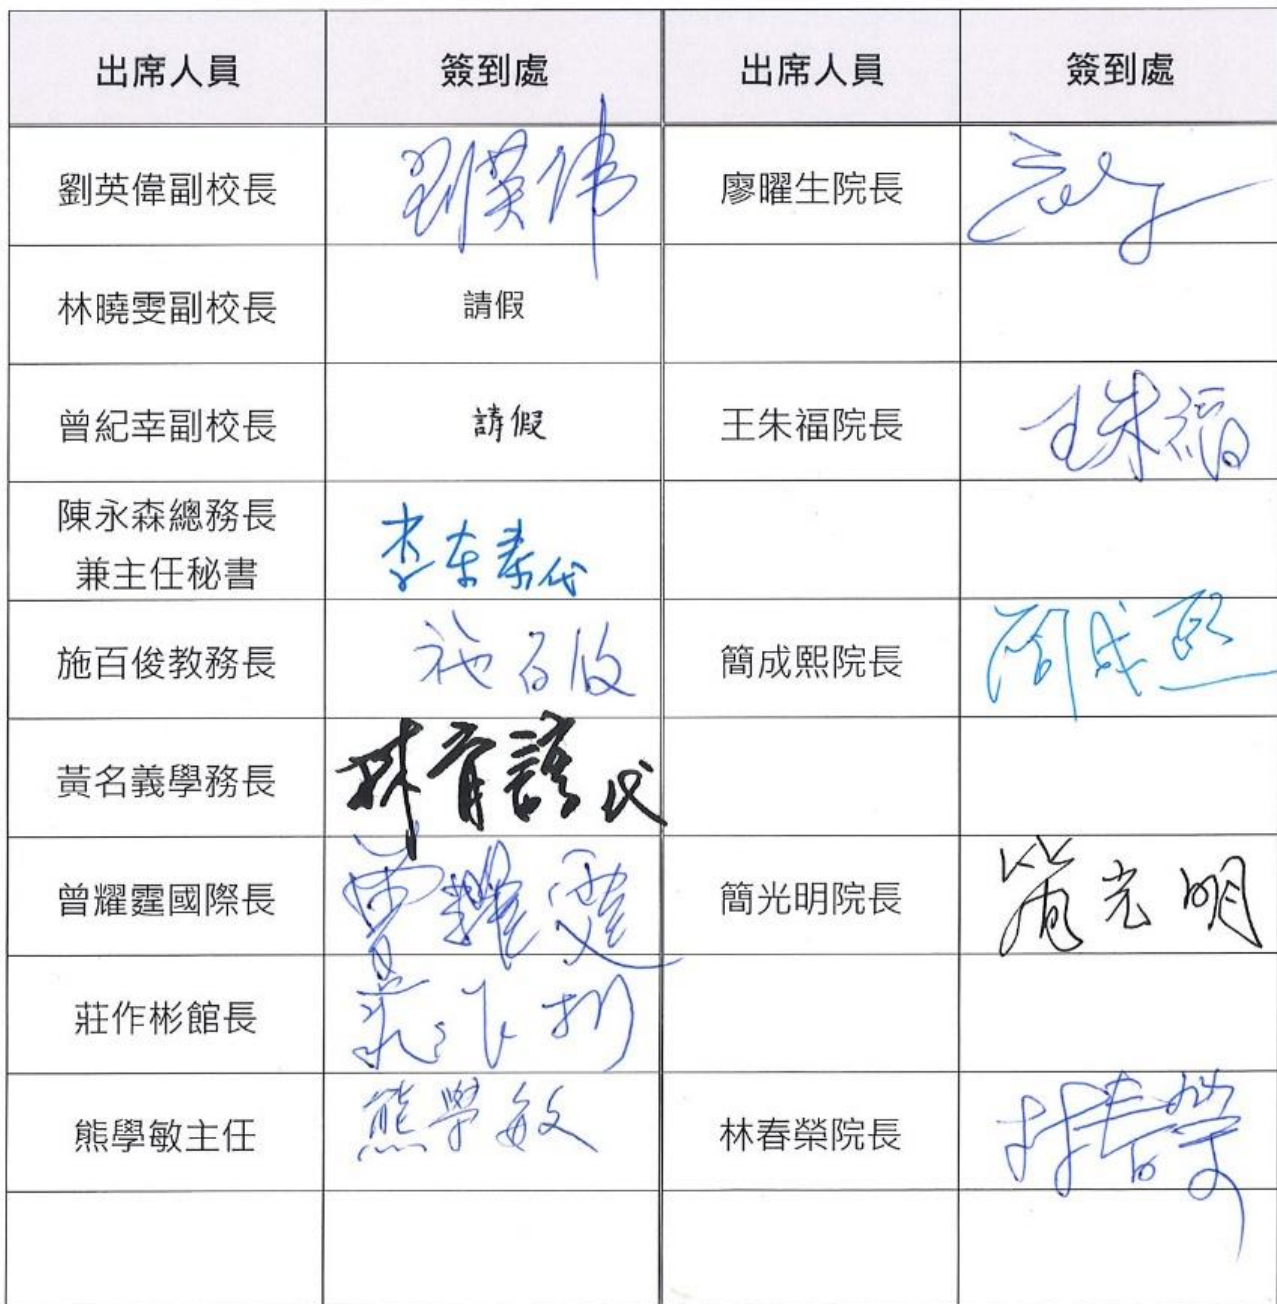 出席人員 簽到處 出席人員 簽到處
劉英偉副校長 劉英偉 廖曜生院長
林曉雯副校長 請假
曾紀幸副校長 請假 王朱福院長 王朱福
陳永森總務長
兼主任秘書 代
施百俊教務長 施百俊 簡成熙院長 簡成熙
黃名義學務長 代
曾耀霆國際長 曾耀霆 簡光明院長 簡光明
莊作彬館長 莊作彬
熊學敏主任 熊學敏 林春榮院長 林春榮